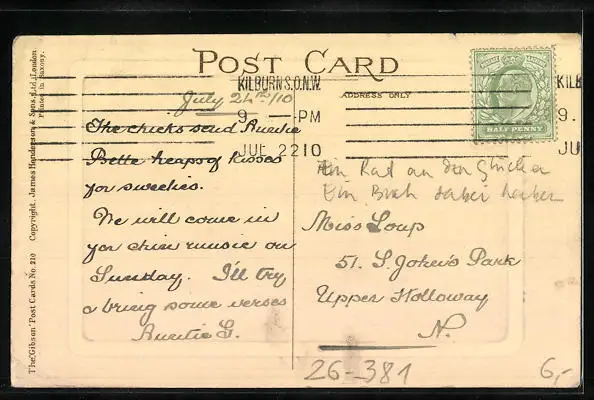 POST CARD
The 'Gibson' Post Cards No. 210 Copyright. James Henderson & Sons, Ltd, London.
Printed in Saxony.
KILBURN S.O.N.W.
9 - PM
JUL 22 10
KILB
9.
JU
HALF PENNY
ADDRESS ONLY
July 24th/10
The chicks send Auntie
Bette heaps of kisses
for sweeties.
We will come in
for chin music on
Sunday. I'll try
a bring some verses
Auntie G.
Ein Rad an den
Ein Buch dabei
Miss Loup
51. St John's Park
Upper Holloway
N.
26-381
6,-